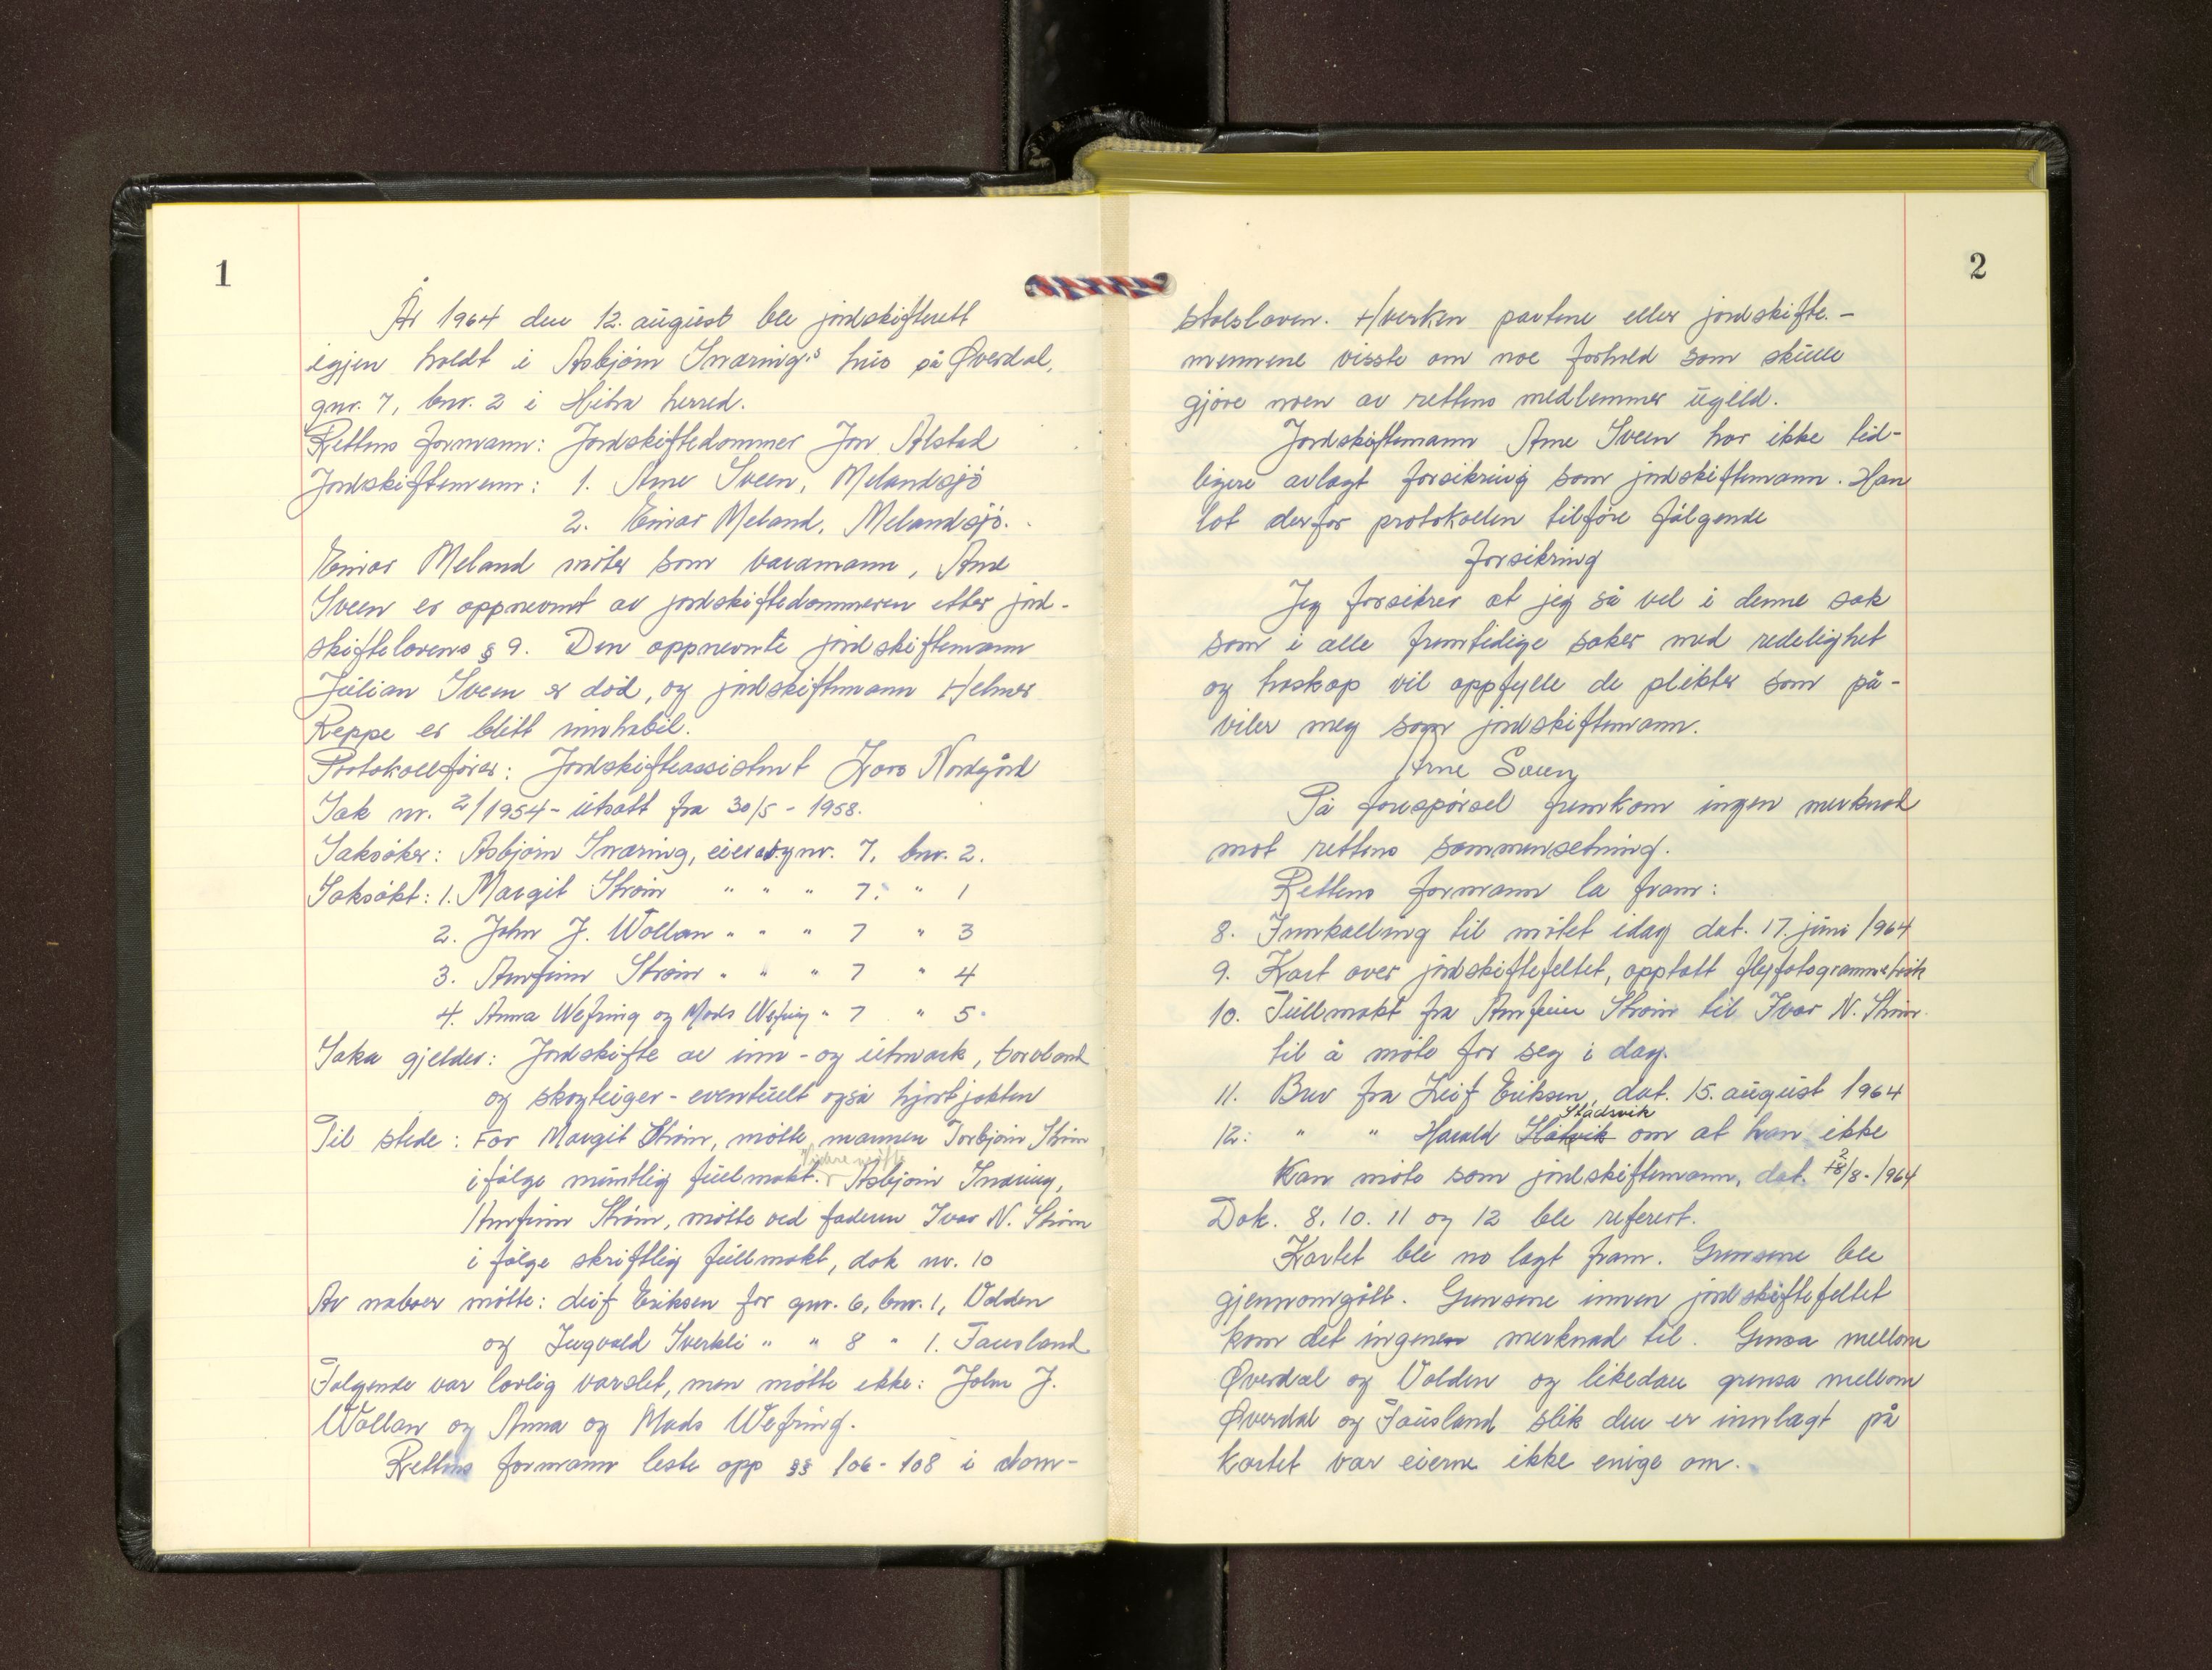 1
År 1964 den 12. august ble jordskifterett
igjen holdt i Asbjørn Snæring's hus på Øverdal,
gnr. 7, bnr. 2 i Hitra herred.
Rettens formann: Jordskiftedommer Jon Alstad
Jordskiftemenn: 1. Arne Sveen, Melandsjø
2. Einar Meland, Melandsjø.
Einar Meland møter som varamann, Arne
Sveen er oppnevnt av jordskiftedommeren etter jord-
skiftelovens § 9. Den oppnevnte jordskiftemann
Julian Sveen er død, og jordskiftemann Helmer
Reppe er blitt innhabil.
Protokollfører: Jordskifteassistent Lars Nordgård
Sak nr. 2/1954 - utsatt fra 30/5 - 1958.
Saksøker: Asbjørn Snæring, eier av gnr. 7, bnr. 2.
Saksøkt: 1. Margit Strøm " " " 7. " 1
2. John J. Wollan " " " 7 " 3
3. Arnfinn Strøm " " " 7 " 4
4. Anna Wefring og Mads Wefring " 7 " 5.
Saka gjelder: Jordskifte av inn- og utmark, torvland
og skogteiger - eventuelt også hjortjakten
Til stede: For Margit Strøm, møtte mannen Torbjørn Strøm
Videre møtte
i følge muntlig fullmakt. Asbjørn Snæring,
Arnfinn Strøm, møtte ved faderen Ivar N. Strøm
i følge skriftlig fullmakt, dok nr. 10
Av naboer møtte: Leif Eriksen for gnr. 6, bnr. 1, Volden
og Ingvald Sverkli " " 8 " 1. Fausland
Følgende var lovlig varslet, men møtte ikke: John J.
Wollan og Anna og Mads Wefring.
Rettens formann leste opp §§ 106-108 i dom-
2
stolsloven. Hverken partene eller jordskifte-
mennene visste om noe forhold som skulle
gjøre noen av rettens medlemmer ugild.
Jordskiftemann Arne Sveen har ikke tid-
ligere avlagt forsikring som jordskiftemann. Han
lot derfor protokollen tilføre følgende
forsikring
Jeg forsikrer at jeg så vel i denne sak
som i alle fremtidige saker med redelighet
og troskap vil oppfylle de plikter som på-
viler meg som jordskiftemann.
Arne Sveen
På forespørsel fremkom ingen merknad
mot rettens sammensetning.
Rettens formann la fram:
8. Innkalling til møtet idag dat. 17. juni 1964
9. Kart over jordskiftefeltet, opptatt flyfotogrammetrisk
10. Fullmakt fra Arnfinn Strøm til Ivar N. Strøm
til å møte for seg i dag.
11. Brev fra Leif Eriksen, dat. 15. august 1964
Stadsvik
12. " " Harald Slåtvik om at han ikke
kan møte som jordskiftemann, dat. 2/8-1964
Dok. 8. 10. 11 og 12 ble referert.
Kartet ble no lagt fram. Grensene ble
gjennomgått. Grensene innen jordskiftefeltet
kom det ingen merknad til. Grensa mellom
Øverdal og Volden og likedan grensa mellom
Øverdal og Fausland slik den er innlagt på
kartet var eierne ikke enige om.